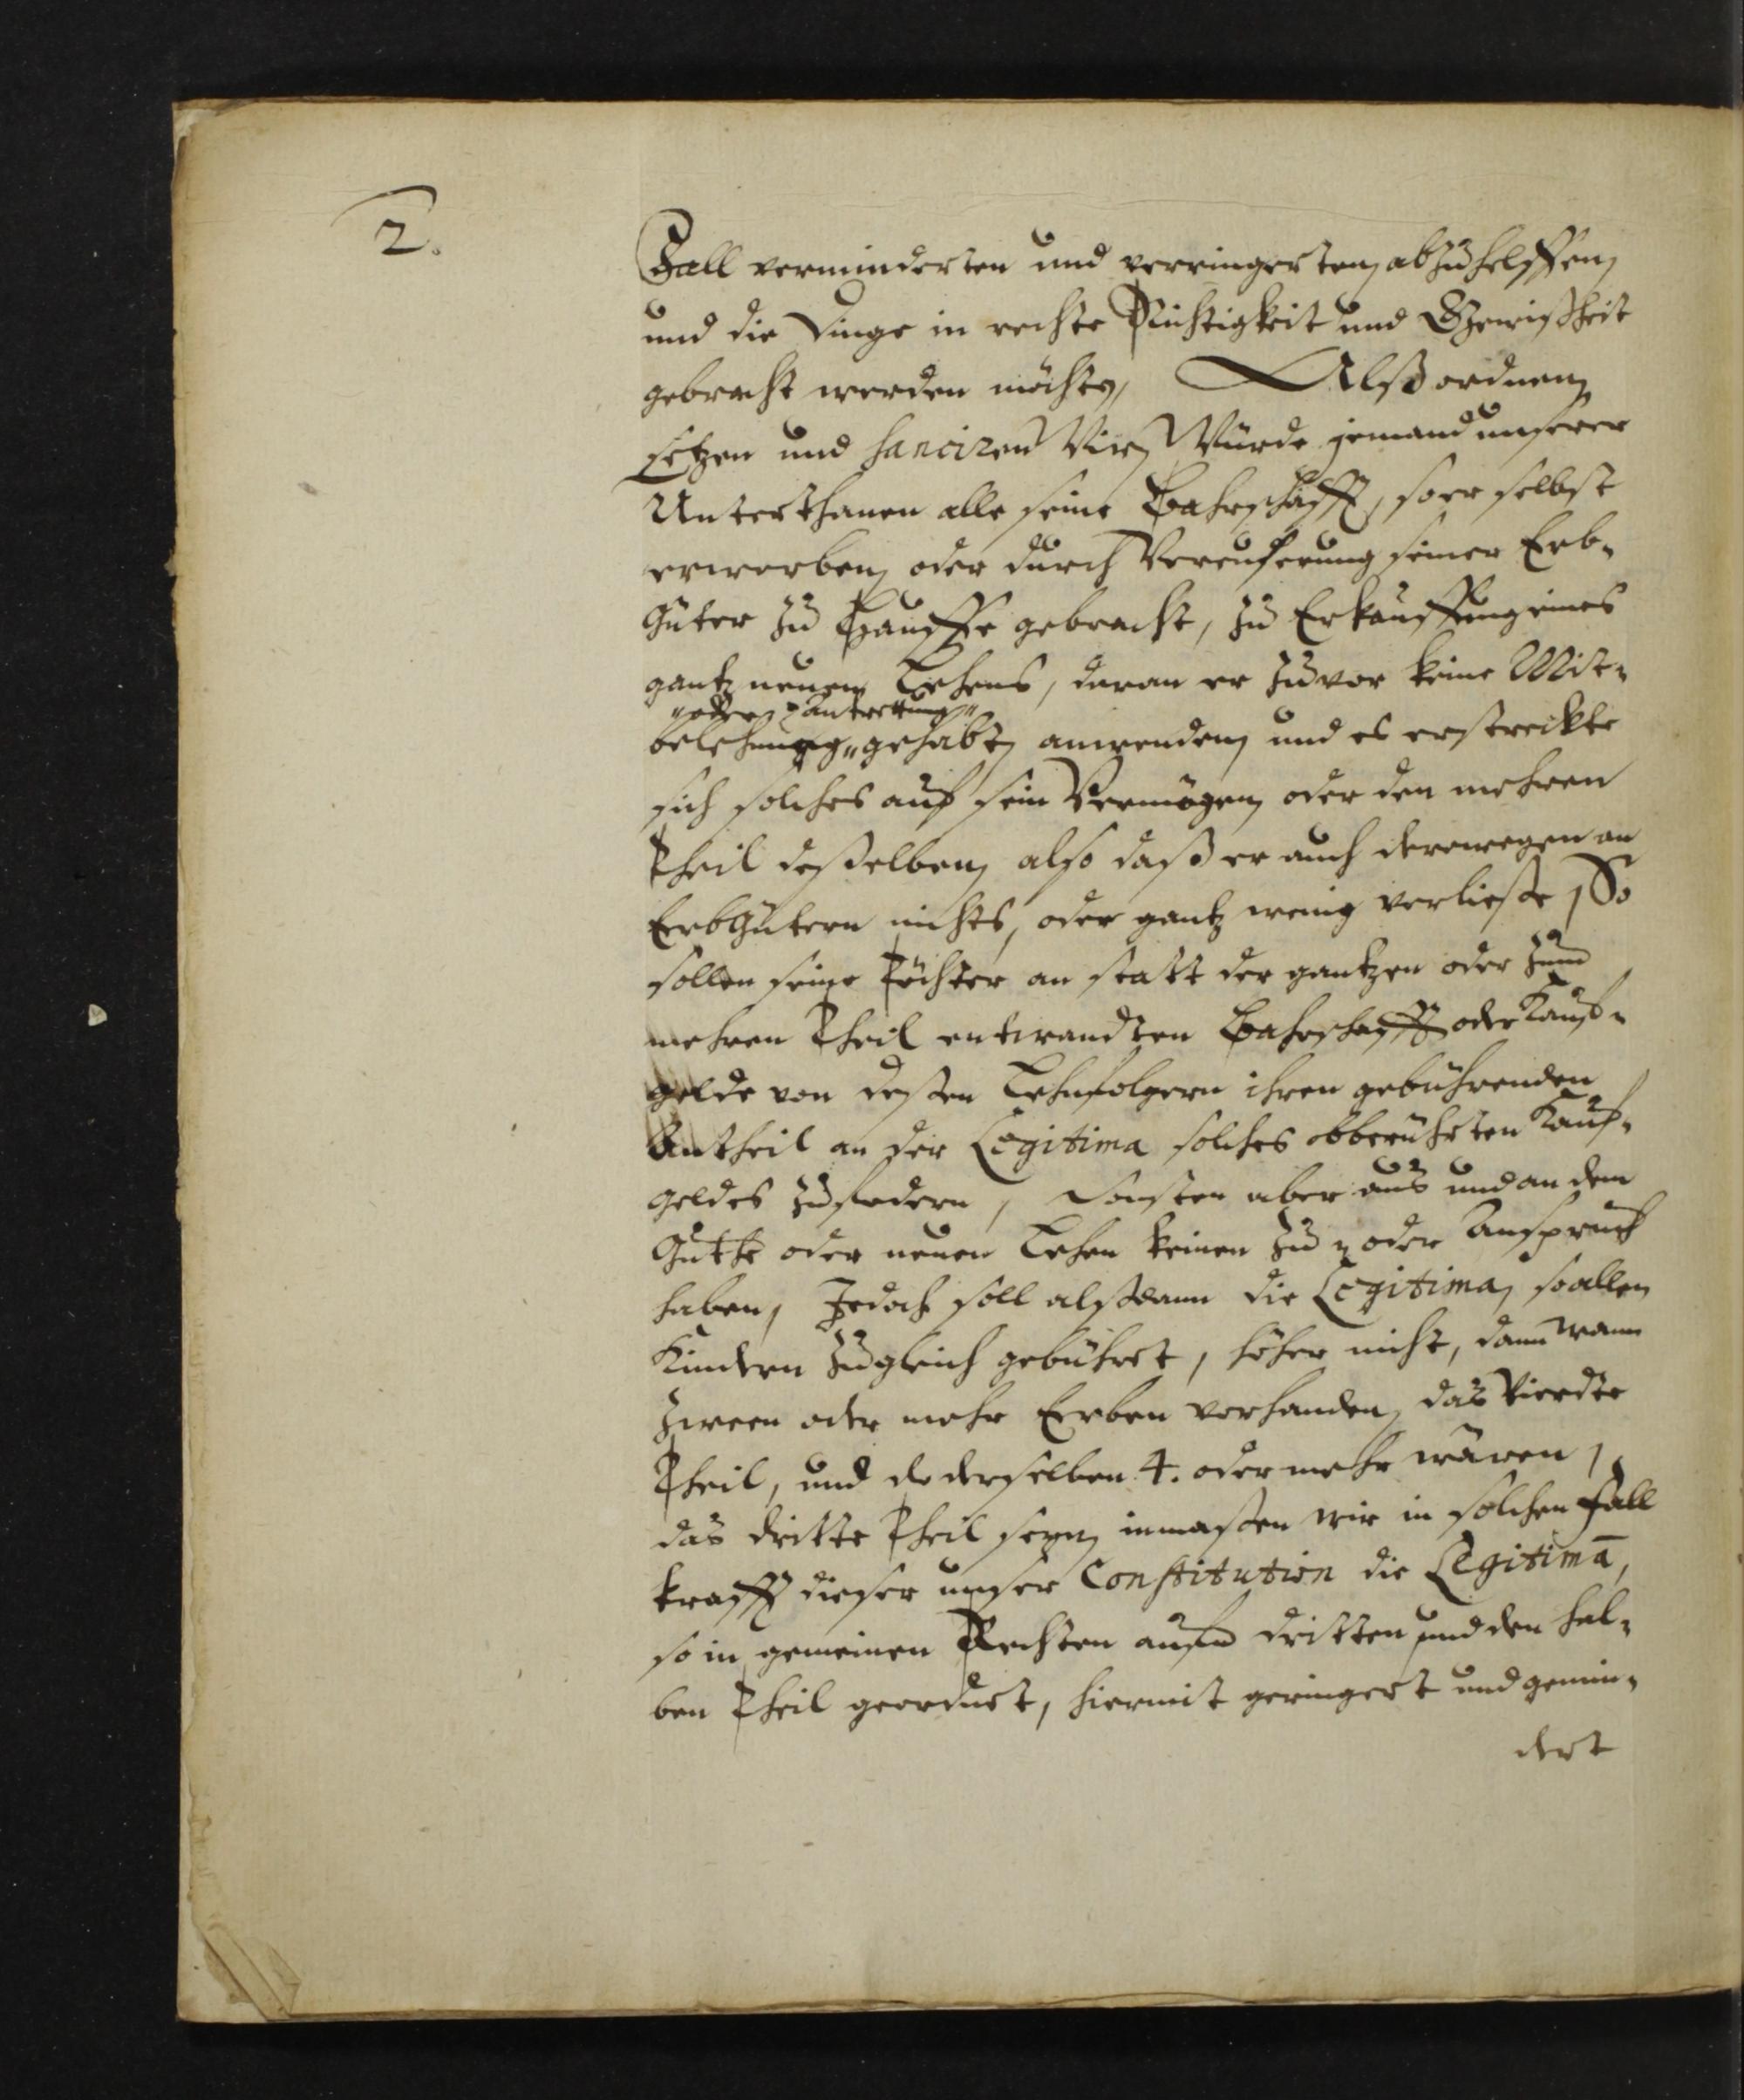 2.
Fall verminderten und verringerten abzuhelffen
und die Dinge in rechte Richtigkeit und Gewißheit
gebracht werden möchte, Alß ordnen
setzen und sanciren Wir, Würde jemand unserer
Unterthanen alle seine Bahrschafft, so er selbst
erworben, oder durch Vereuserung seiner Erb-
Güter zu Hauffe gebracht, zu Erkauffung eines
gantz neuen Lehens, daran er zuvor keine Mit-
"oder Antrettung"
belehnung "gehabt, anwenden, und es erstreckte
sich solches auf sein Vermögen oder den mehren
Theil desselben, also daß er auch derowegen an
Erbgütern nichts, oder gantz wenig verließe, So
sollen seine Töchter an statt der gantzen oder zum
mehren Theil entwandten Bahrschafft oder Kauf-
gelde von dessen Lehnfolgern ihren gebührenden
Antheil an der Legitima solches obberührten Kauf-
geldes zufodern, Sonsten aber aus und an dem
Guthe oder neuen Lehen keinen Zu- oder Anspruch
haben, Jedoch soll alßdann die Legitima, so allen
Kindern zugleich gebühret, höher nicht, dann wann
zween oder mehr Erben vorhanden, das Vierdte
Theil, und da derselben 4. oder mehr wären,
das dritte Theil seyn, inmaßen wir in solchen Fall
krafft dieser unser Constitution die Legitimā,
so in gemeinen Rechten aufn dritten und den hal-
ben Theil geordnet, hiermit geringert und gemin-
dert